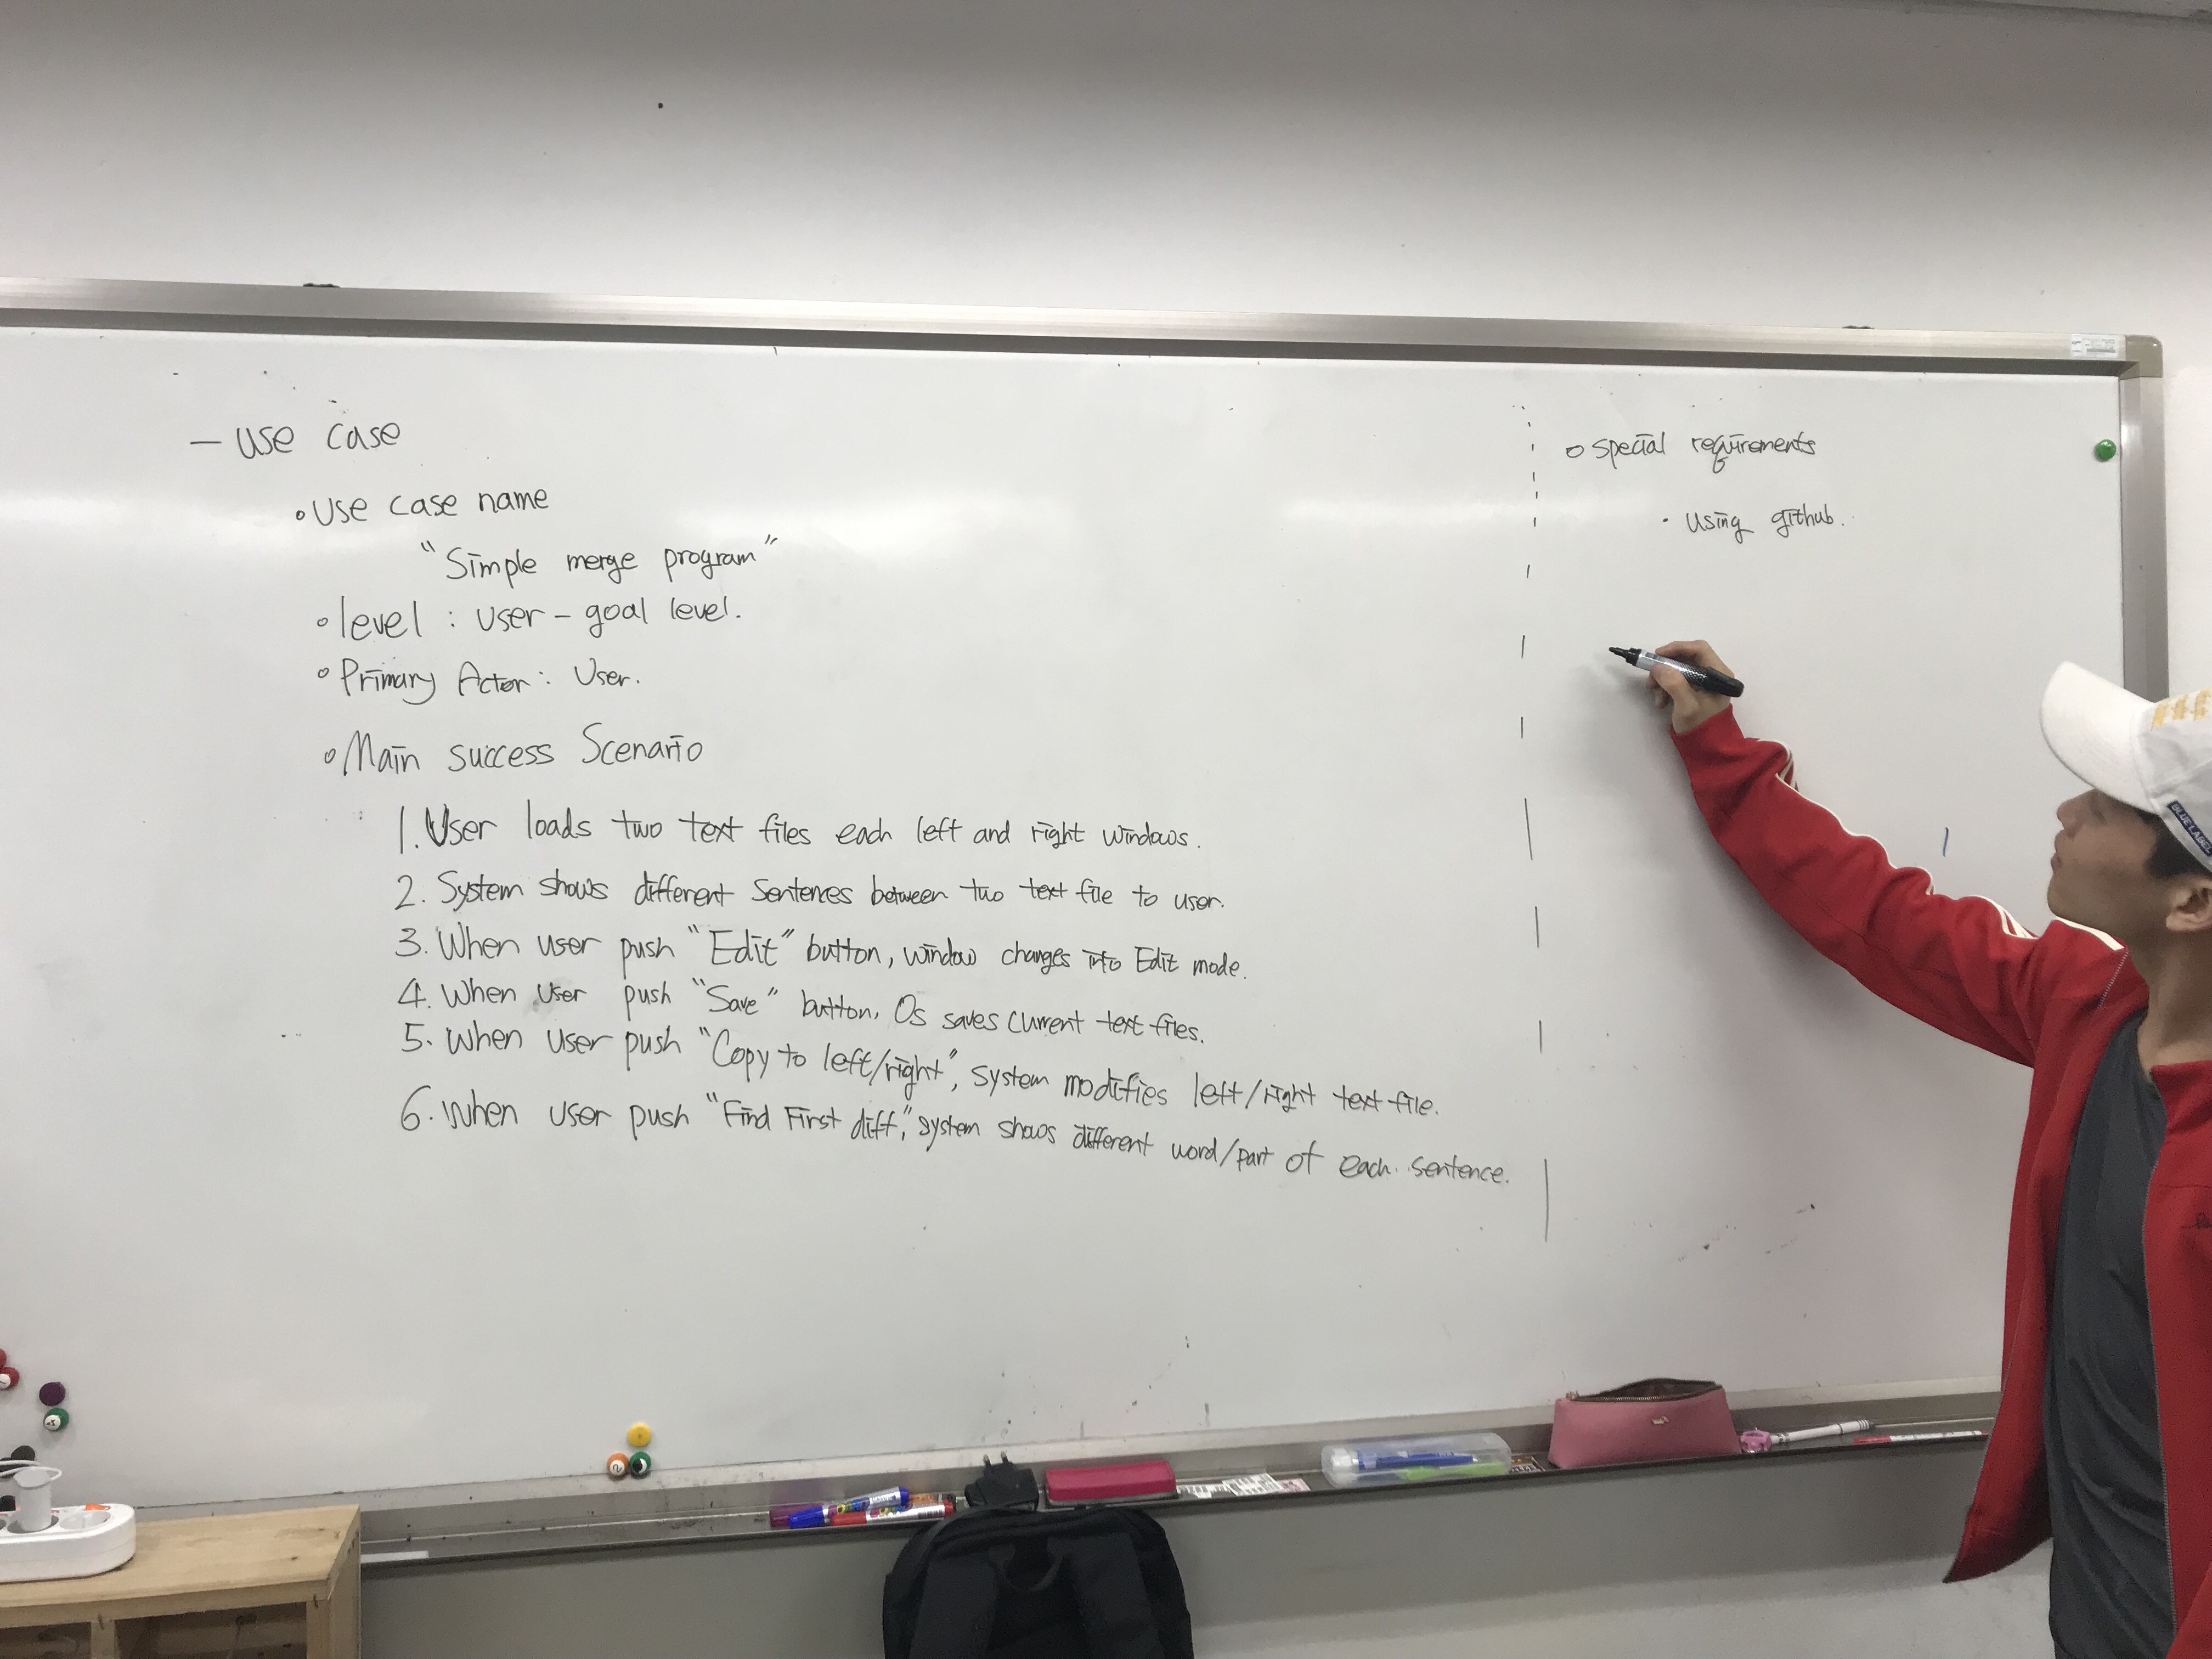 — use case
∘ Use case name
"Simple merge program"
∘ level : user - goal level.
∘ Primary Actor : User.
∘ Main success Scenario
1. User loads two text files each left and right windows.
2. System shows different sentences between two text file to user.
3. When user push "Edit" button, window changes into Edit mode.
4. When user push "Save" button, Os saves current text files.
5. When user push "Copy to left/right", system modifies left/right text file.
6. When user push "Find First diff", system shows different word/part of each sentence.
∘ special requirements
· using github.
BLUE LABEL